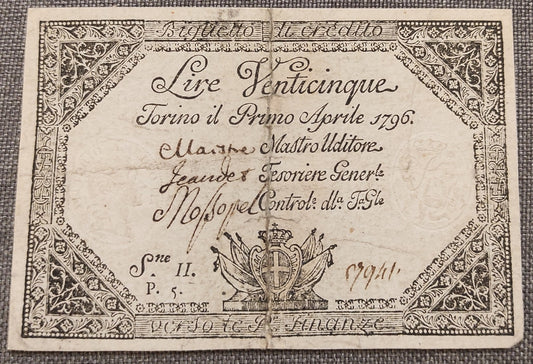 Biglietto di credito
Lire Venticinque
Torino il Primo Aprile 1796.
Mastro Uditore
Tesoriere Gener.le
Control.e dl.a T.a G.le
S.ne II.
P. 5.
verso le R.e Finanze